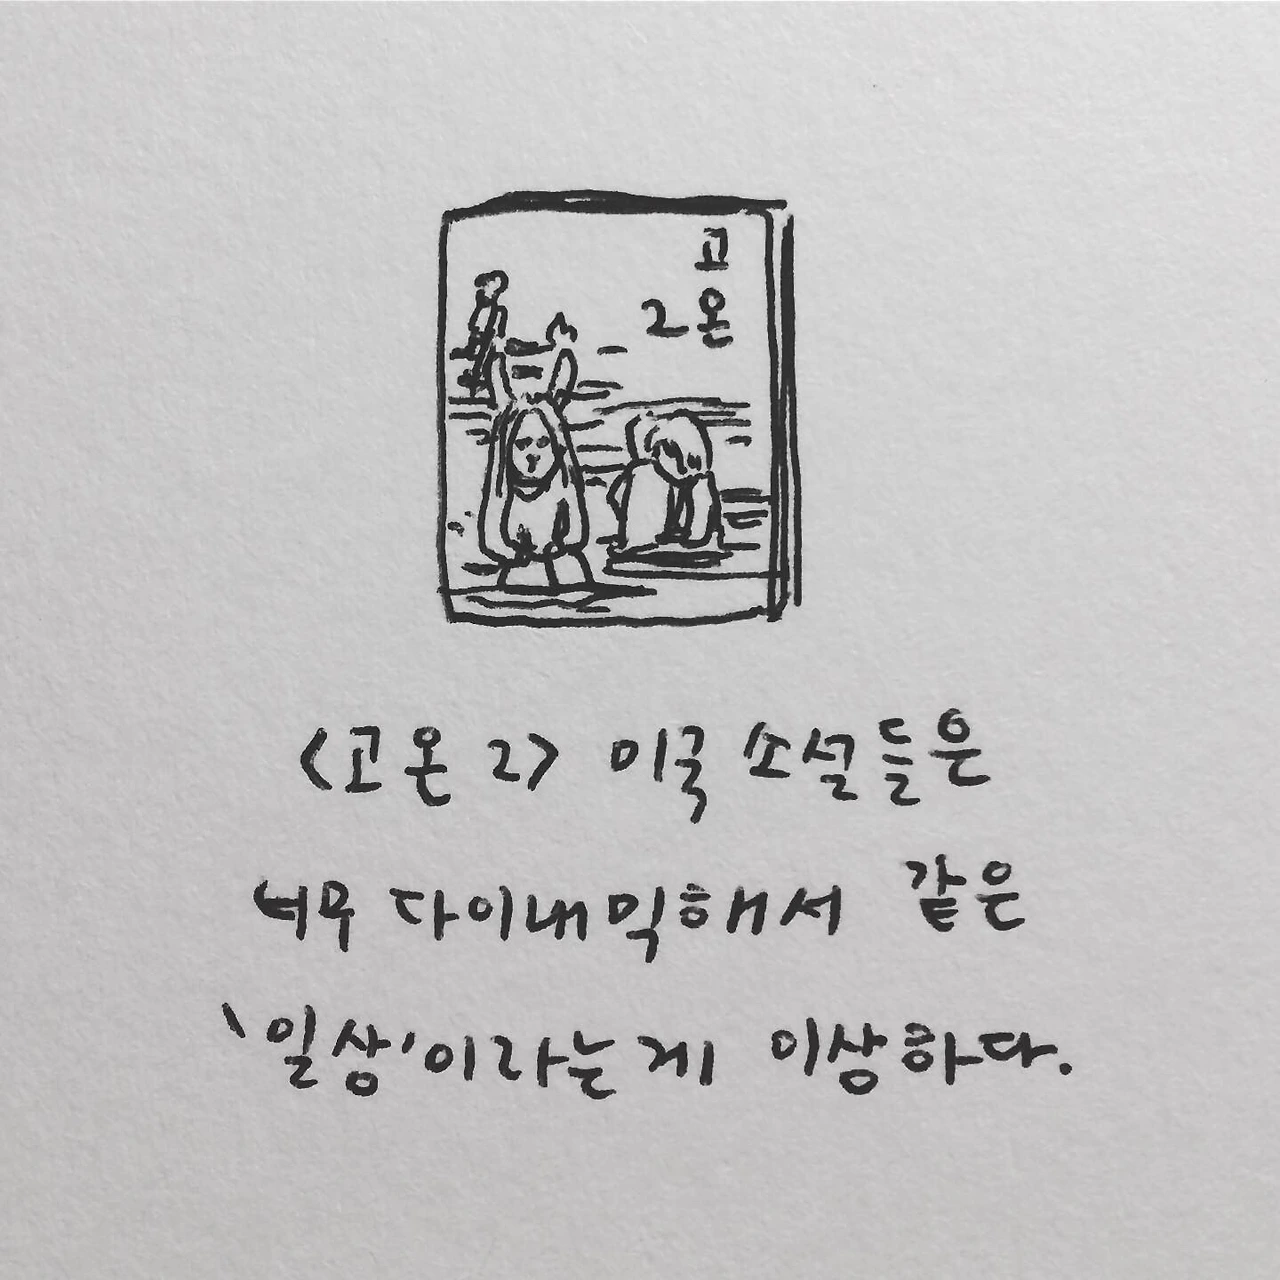 고
2 온
<고온 2> 미국 소설들은
너무 다이내믹해서 같은
'일상'이라는게 이상하다.